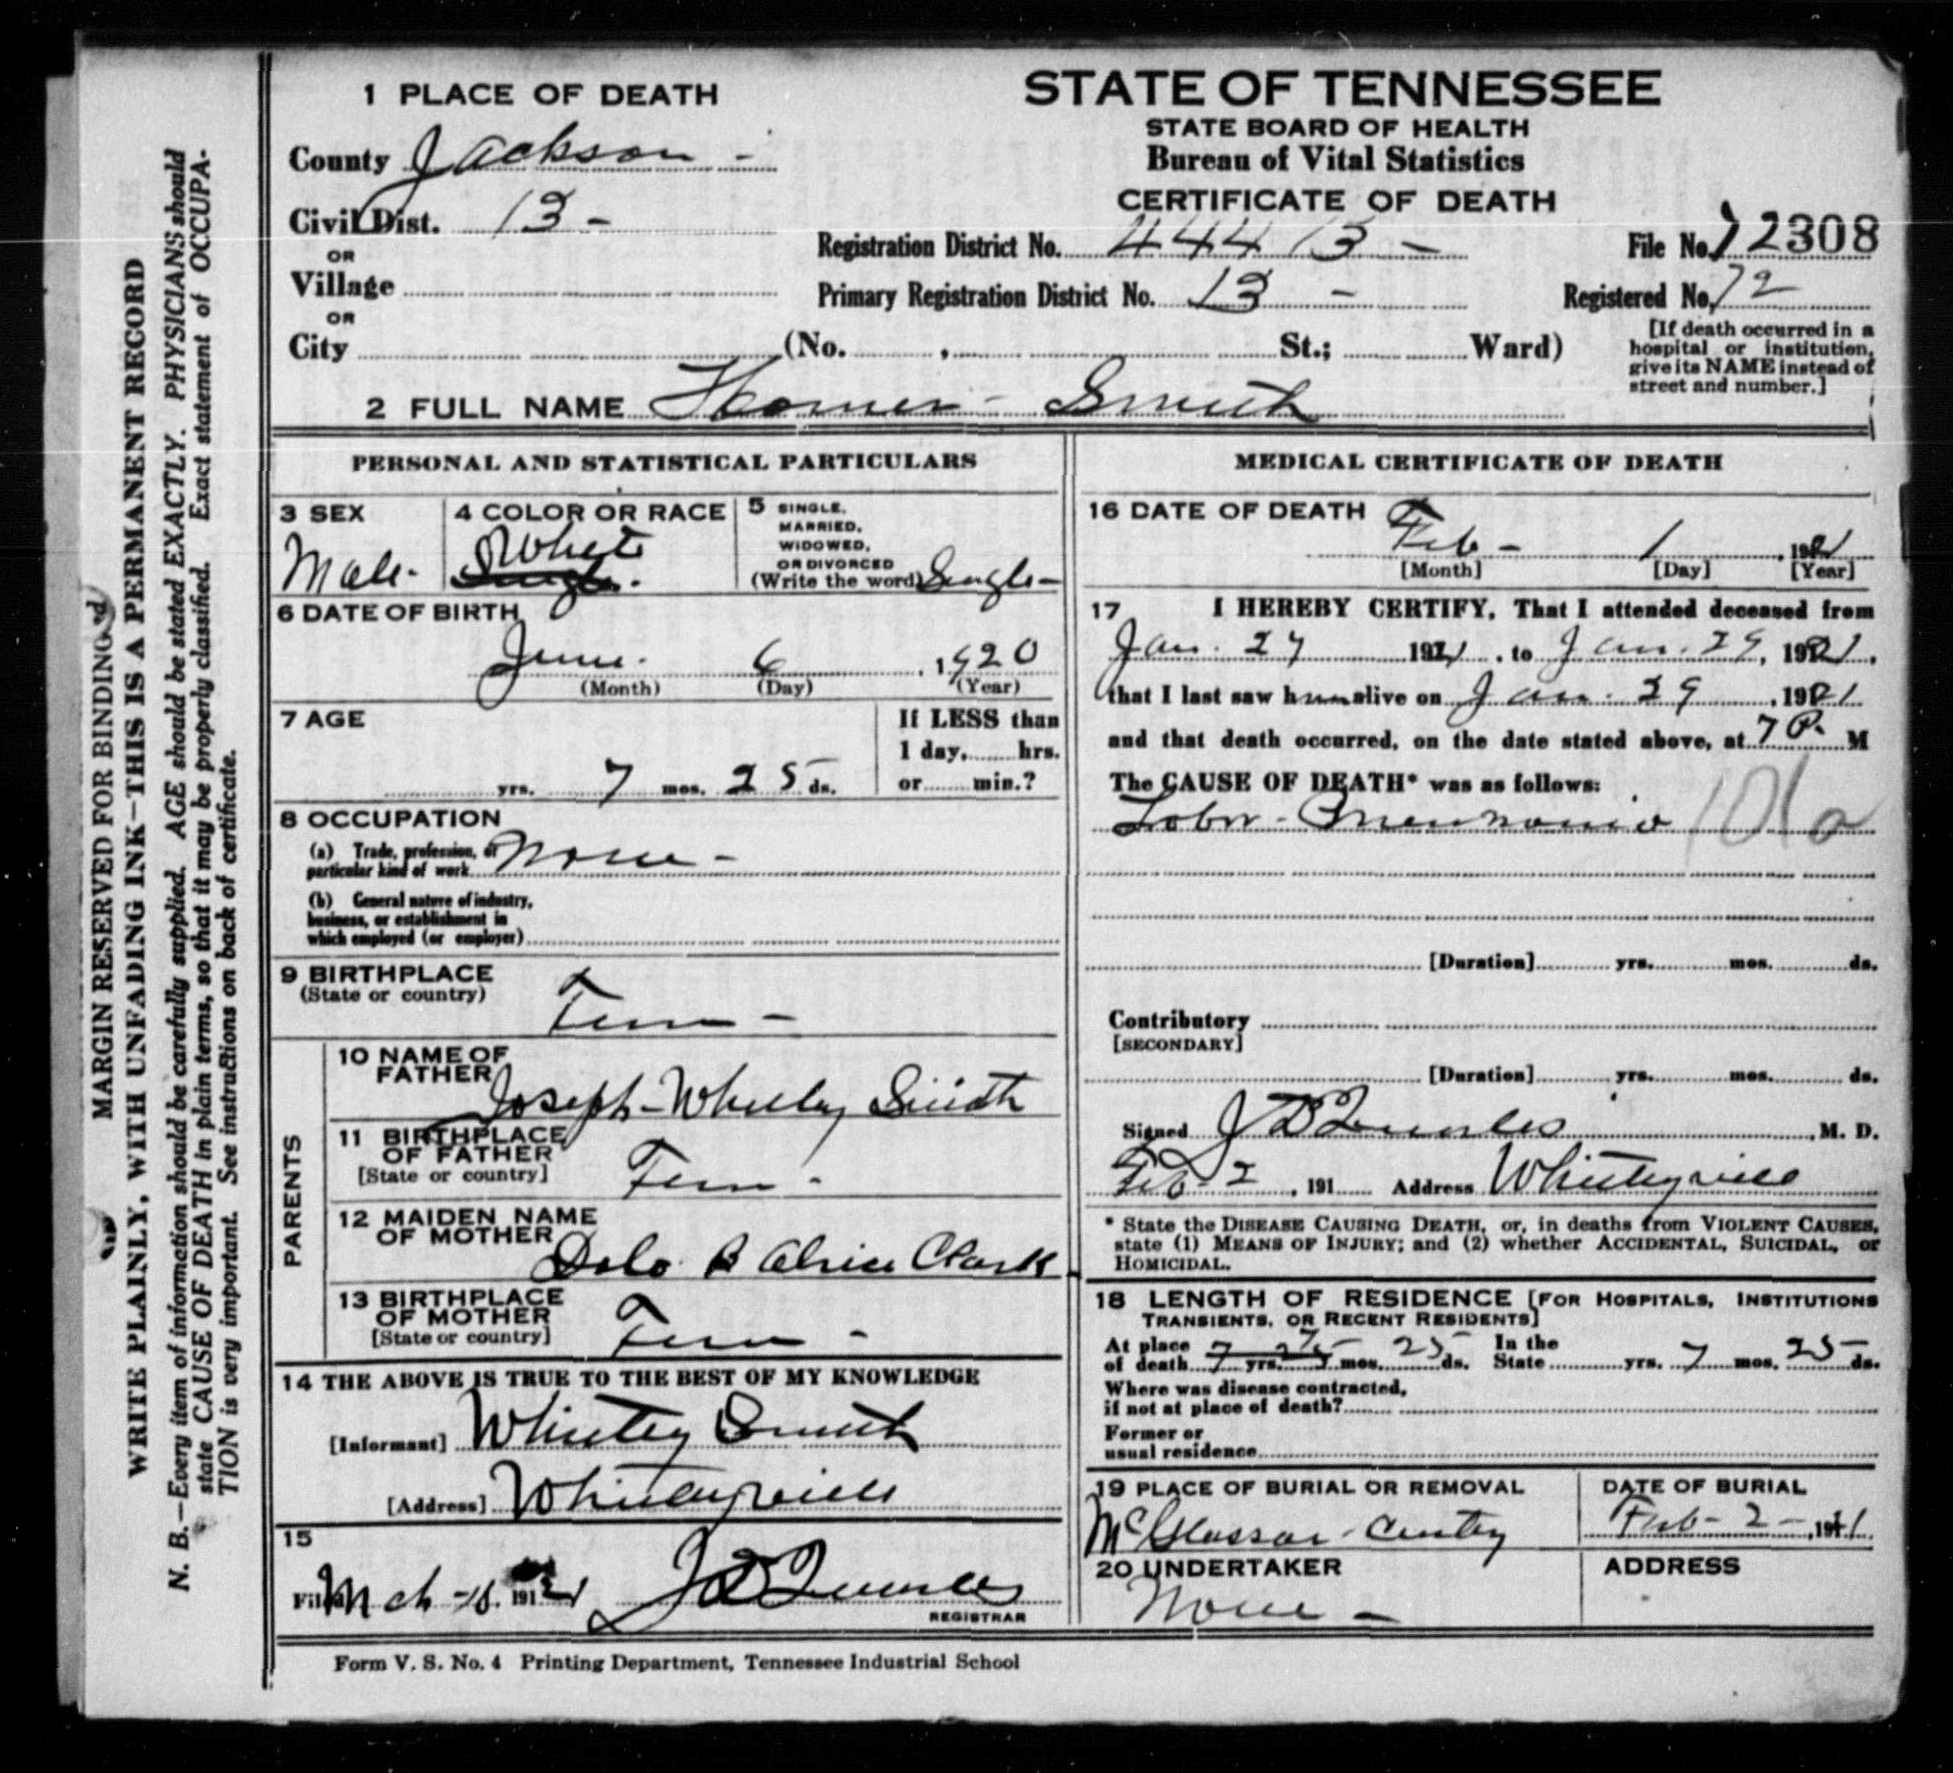 1 PLACE OF DEATH
County Jackson -
Civil Dist. 13 -
OR
Village
OR
City (No. , St.; Ward)
STATE OF TENNESSEE
STATE BOARD OF HEALTH
Bureau of Vital Statistics
CERTIFICATE OF DEATH
Registration District No. 444 13 - File No. 12308
Primary Registration District No. 13 - Registered No. 72
[If death occurred in a
hospital or institution,
give its NAME instead of
street and number.]
2 FULL NAME Homer - Smith
PERSONAL AND STATISTICAL PARTICULARS
3 SEX
Male -
4 COLOR OR RACE
White
Single.
5 SINGLE,
MARRIED,
WIDOWED,
OR DIVORCED
(Write the word) Single -
6 DATE OF BIRTH
June. 6, 1920
(Month) (Day) (Year)
7 AGE
yrs. 7 mos. 25 ds.
If LESS than
1 day, hrs.
or min.?
8 OCCUPATION
(a) Trade, profession, or
particular kind of work None -
(b) General nature of industry,
business, or establishment in
which employed (or employer)
9 BIRTHPLACE
(State or country) Tenn -
PARENTS
10 NAME OF
FATHER Joseph - Whitley Smith
11 BIRTHPLACE
OF FATHER
[State or country] Tenn -
12 MAIDEN NAME
OF MOTHER Clark
13 BIRTHPLACE
OF MOTHER
[State or country] Tenn -
14 THE ABOVE IS TRUE TO THE BEST OF MY KNOWLEDGE
[Informant] Whitley Smith
[Address] Whitleyville
15
Filed Mch - 18. 1921 J D Quarles
REGISTRAR
MEDICAL CERTIFICATE OF DEATH
16 DATE OF DEATH
Feb - 1, 1921
[Month] [Day] [Year]
17 I HEREBY CERTIFY, That I attended deceased from
Jan. 27 1921, to Jan. 29, 1921,
that I last saw him alive on Jan. 29, 1921
and that death occurred, on the date stated above, at 7 P. M
The CAUSE OF DEATH* was as follows:
Lobar - Pneumonia 101a
[Duration] yrs. mos. ds.
Contributory
[SECONDARY]
[Duration] yrs. mos. ds.
Signed J D Quarles, M. D.
Feb 2, 191 Address Whitleyville
* State the DISEASE CAUSING DEATH, or, in deaths from VIOLENT CAUSES,
state (1) MEANS OF INJURY; and (2) whether ACCIDENTAL, SUICIDAL, or
HOMICIDAL.
18 LENGTH OF RESIDENCE [FOR HOSPITALS, INSTITUTIONS
TRANSIENTS, OR RECENT RESIDENTS]
At place
of death 7 yrs. mos. 25 ds.
In the
State yrs. 7 mos. 25 ds.
Where was disease contracted,
if not at place of death?
Former or
usual residence
19 PLACE OF BURIAL OR REMOVAL
DATE OF BURIAL
Feb - 2 -, 1921
20 UNDERTAKER
None -
ADDRESS
Form V. S. No. 4 Printing Department, Tennessee Industrial School
MARGIN RESERVED FOR BINDING
WRITE PLAINLY, WITH UNFADING INK—THIS IS A PERMANENT RECORD
N. B.—Every item of information should be carefully supplied. AGE should be stated EXACTLY. PHYSICIANS should
state CAUSE OF DEATH in plain terms, so that it may be properly classified. Exact statement of OCCUPA-
TION is very important. See instructions on back of certificate.